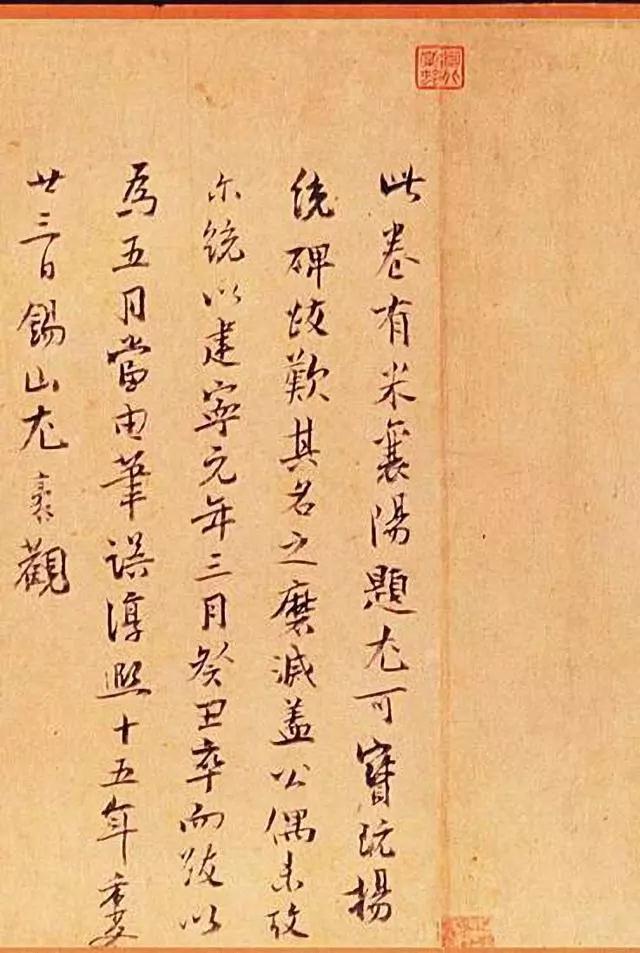 此卷有米襄陽題尤可寶玩楊
統碑跋歎其名之磨滅蓋公偶未攷
尓統以建寧元年三月癸丑卒而跋以
為五月當由筆誤淳熙十五年重夏
廿三日錫山尤袤觀